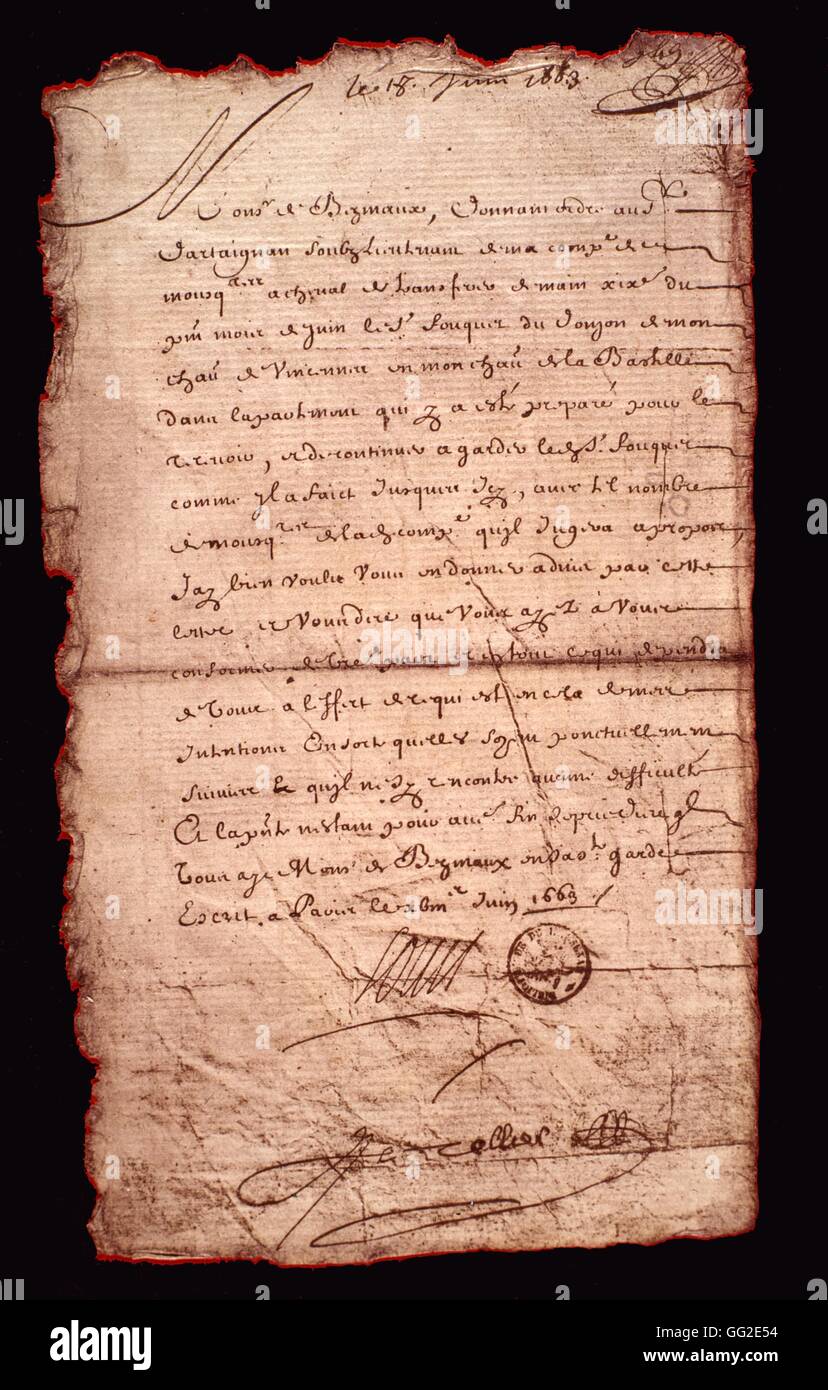 le 18. Juin 1663
Mons.r de Bezmaux, Donnant ordre au S.r
Dartaignan soubzlieutenant de ma comp.e de
mousq.rer a cheval de transferer demain xix.e du
pnt mois de Juin le S.r fouquet du Donjon de mon
chau de Vincennes en mon chau de la Bastille
dans lapartement qui y a esté preparé pour le
recevoir, et de continuer a garder led S.r fouquet
comme Il a faict Jusques Icy, avec tel nombre
de mousq.res de lad comp.e quil Jugera a propos,
Jay bien voulu vous en donner advis par cette
lettre et vous dire que vous ayez à vous
conformer de vre part et en tout ce qui dependra
de vous à leffect de ce qui est en cela de mes
Intentions En sorte quelles soyent ponctuellement
suivies et quil ne sy rencontre aucune difficulté
Et la pnte nestant pour autre fin Je prie Dieu ql
vous ayt Mons.r de Bezmaux en sa s.te garde
Escrit a Paris le Juin 1663
Louis
Le Tellier
alamy
a
alamy stock photo
GG2E54
www.alamy.com